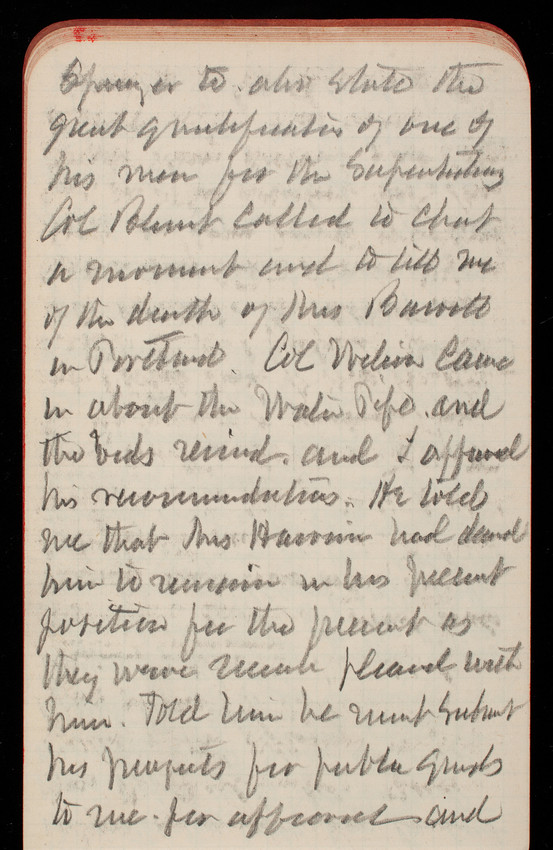 to also state the
great of one of
his men for the
Col Blunt called to chat
a moment and to tell me
of the death of Mrs
in Portland. Col Wilson came
in about the Water Pipe. and
the bids and I
his recommendations. He told
me that Mrs Harrison had
him to remain in his present
position for the present as
they were much pleased with
him. Told him he must submit
his for public
to me for approval and